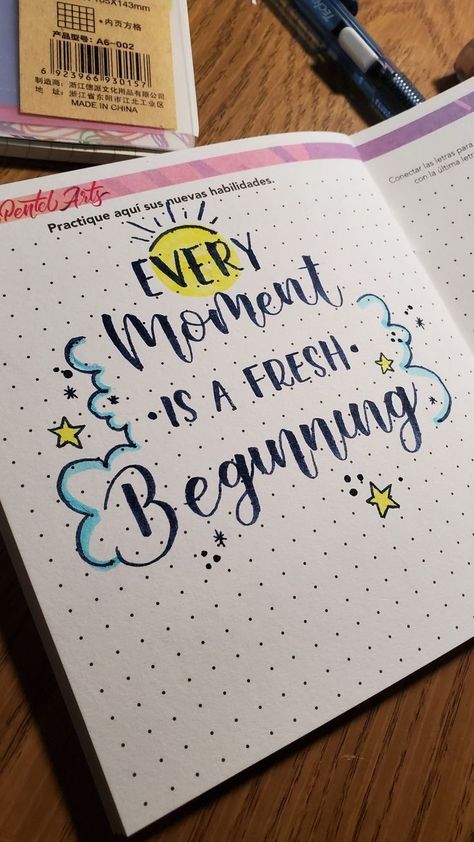 105×143mm
·内页方格
产品型号：A6-002
6 923966 930157
制造商：浙江德派文化用品有限公司
地 址：浙江省东阳市江北工业区
MADE IN CHINA
Pentel Arts
Practique aquí sus nuevas habilidades.
EVERY
Moment
·IS A FRESH·
Beginning
Conectar las letras para
con la última let